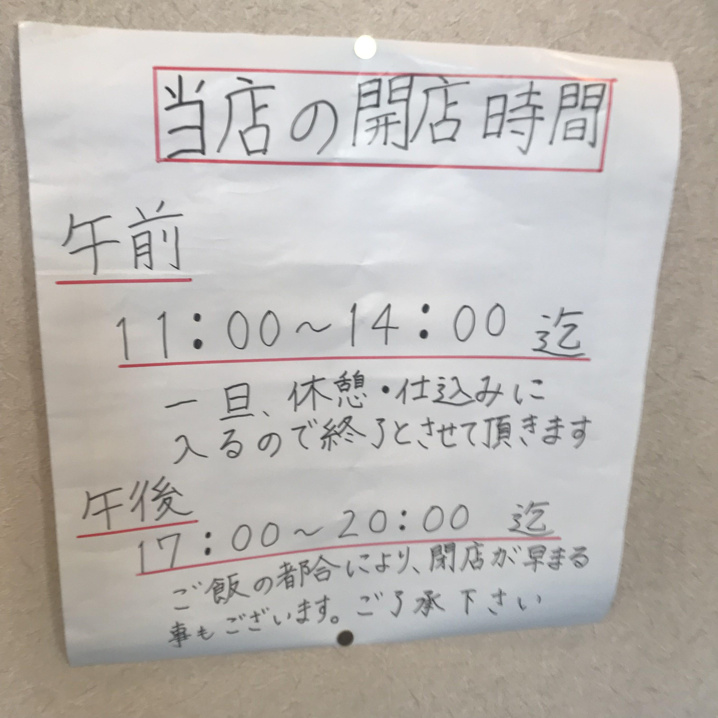 当店の開店時間
午前
11:00〜14:00 迄
一旦、休憩・仕込みに
入るので終了とさせて頂きます
午後
17:00〜20:00 迄
ご飯の都合により、閉店が早まる
事もございます。ご了承下さい